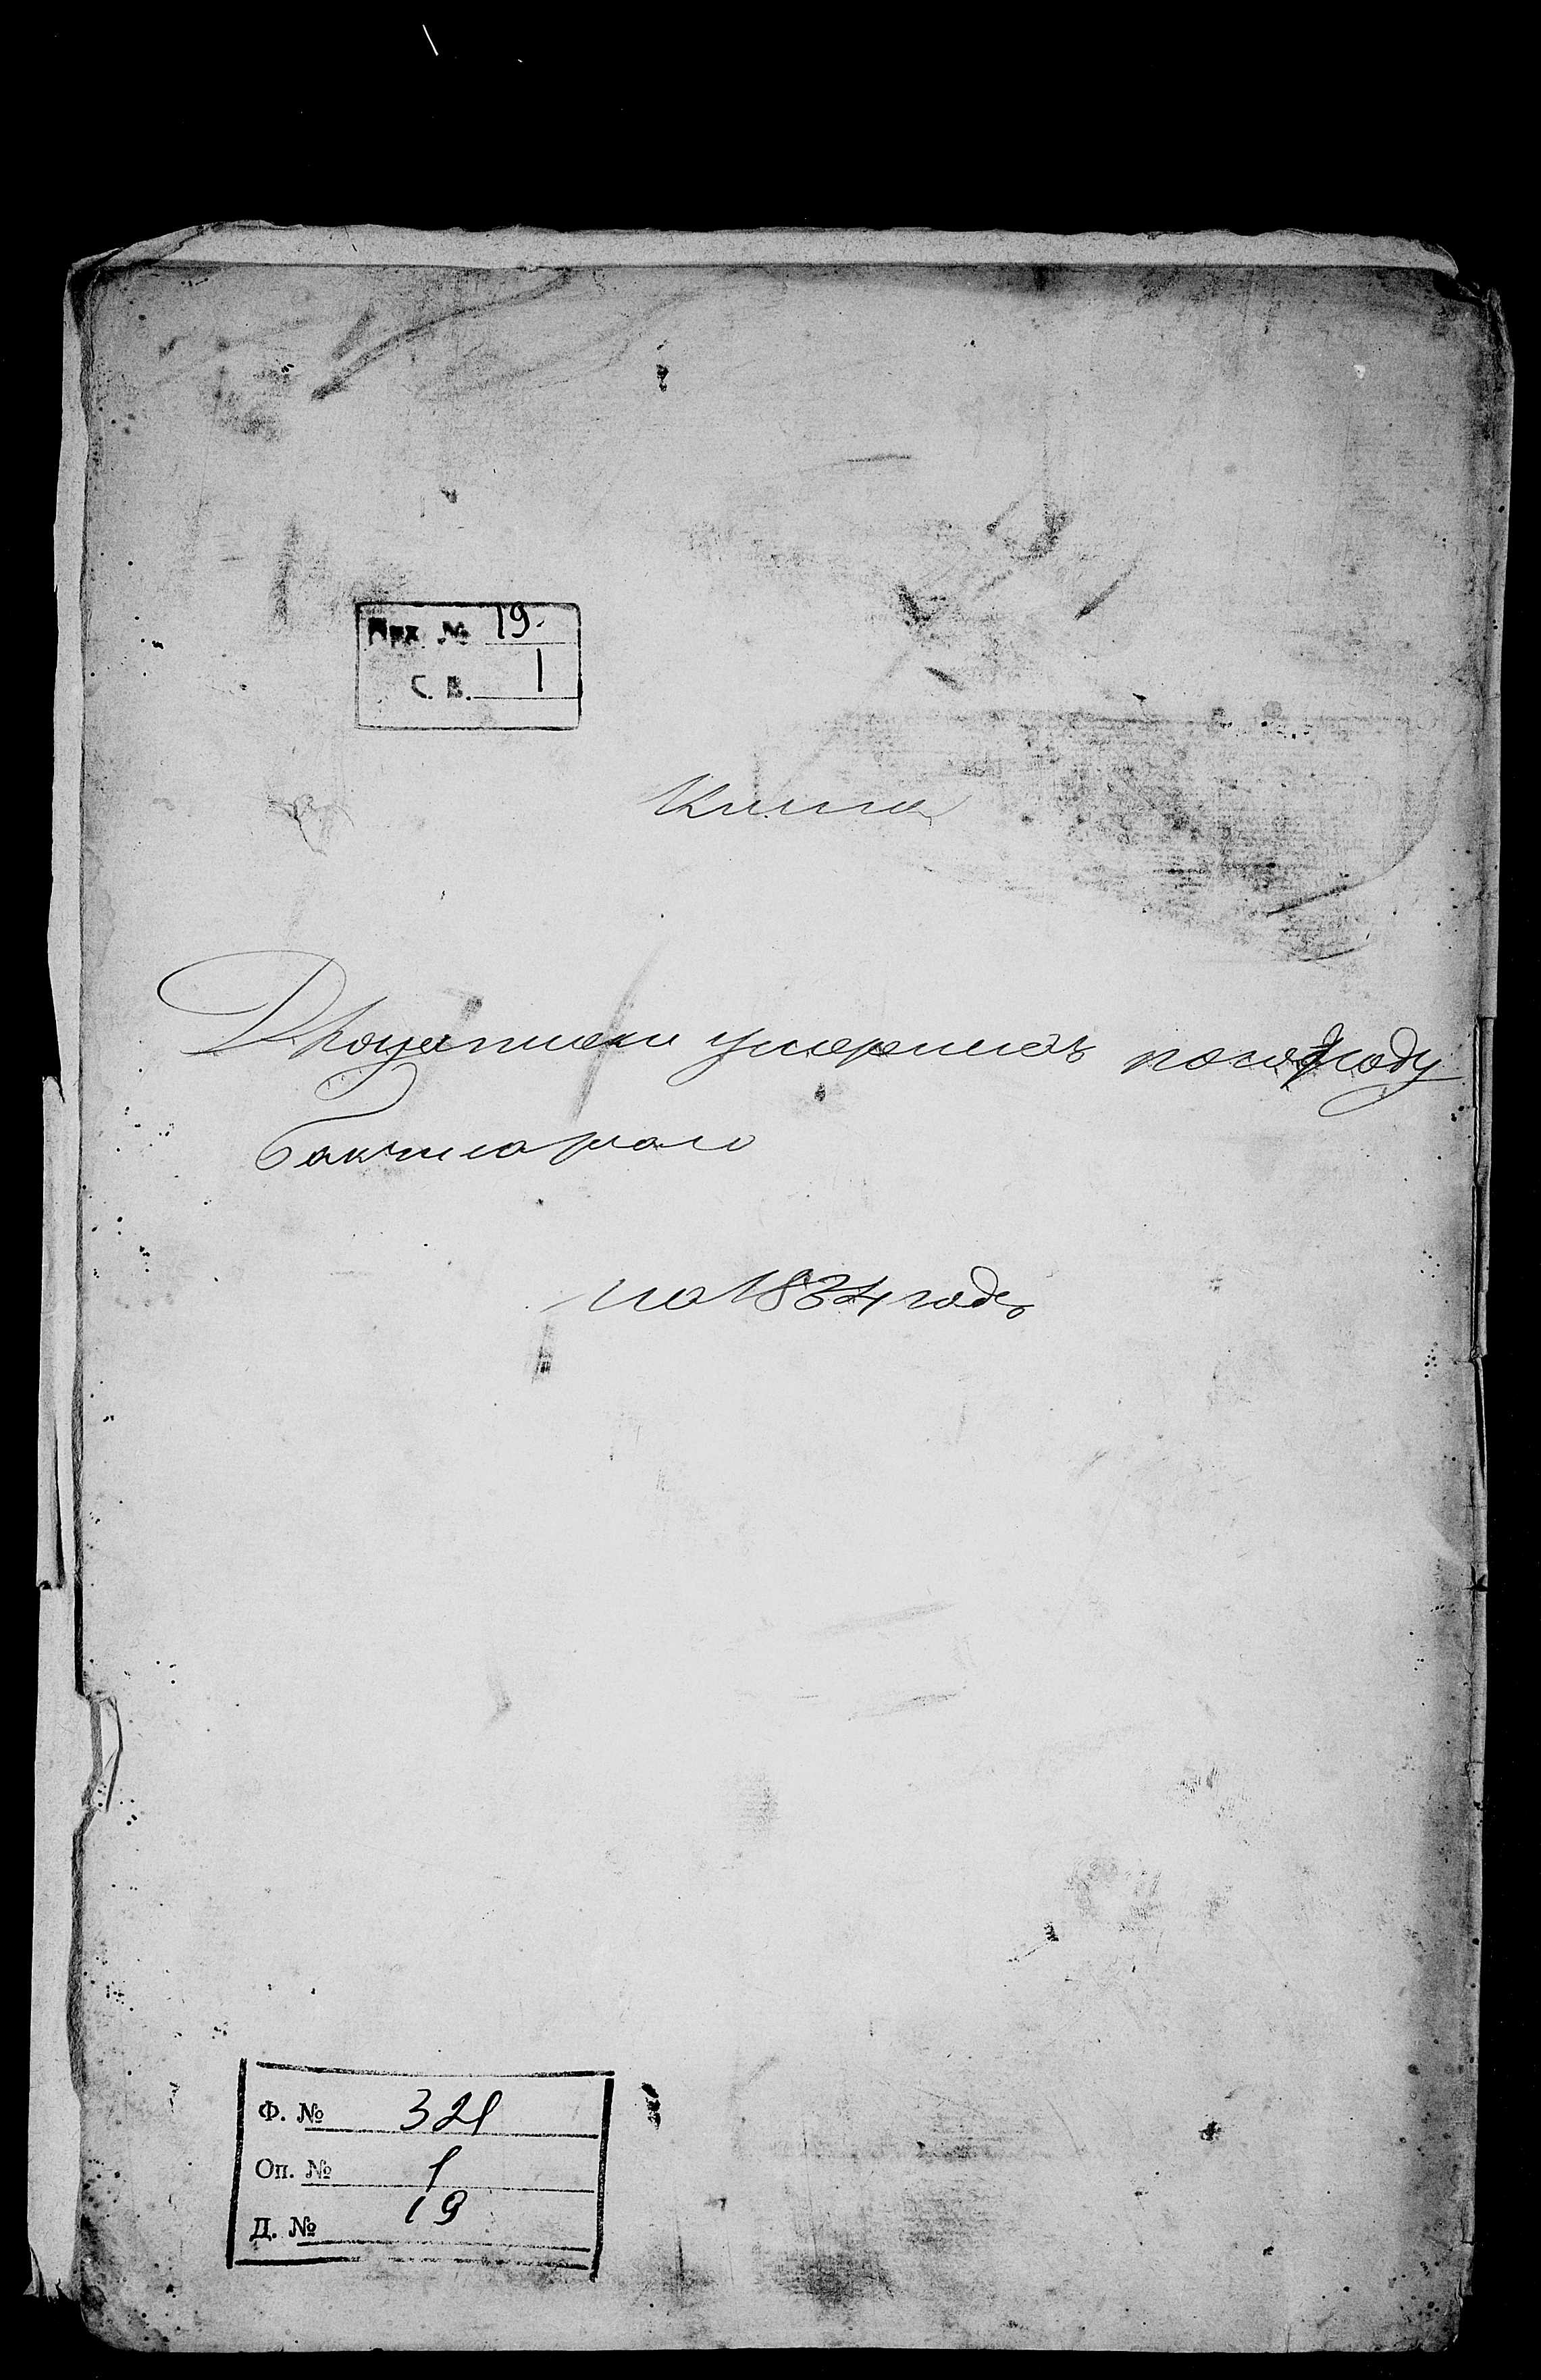 Арх. № 19.
С. В. 1
Книга
Для записки умершихъ по городу
Бакчисараю
на 1834 годъ
Ф. № 321
Оп. № 1
Д. № 19